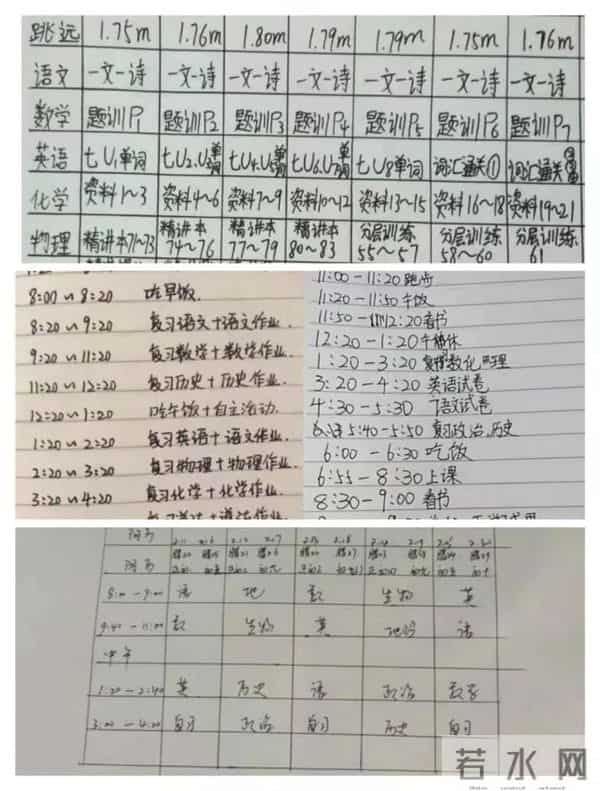 跳远 1.75m 1.76m 1.80m 1.79m 1.79m 1.75m 1.76m
语文 一文一诗 一文一诗 一文一诗 一文一诗 一文一诗 一文一诗 一文一诗
数学 题训P1 题训P2 题训P3 题训P4 题训P5 题训P6 题训P7
英语 七U1单词 七U2.U3单词 七U4.U5单词 七U6.U7单词 七U8单词 词汇通关① 词汇通关
化学 资料1~3 资料4~6 资料7~9 资料10~12 资料13~15 资料16~18 资料19~21
物理 精讲本71~73 精讲本74~76 精讲本77~79 精讲本80~83 分层训练55~57 分层训练58~60 分层训练61
8:00~8:20 吃早饭.
8:20~9:20 复习语文+语文作业.
9:20~11:20 复习数学+数学作业.
11:20~12:20 复习历史+历史作业.
12:20~1:20 吃午饭+自主活动.
1:20~2:20 复习英语+语文作业.
2:20~3:20 复习物理+物理作业.
3:20~4:20 复习化学+化学作业.
11:00-11:20 跑步
11:20-11:50 午饭
11:50-12:20 看书
12:20-1:20 午休
1:20-3:20 数化物理
3:20-4:20 英语试卷
4:30-5:30 语文试卷
5:40-5:50 复习政治.历史
6:00-6:30 吃饭
6:55-8:30 上课
8:30-9:00 看书
8:00-9:00 语 地 数 生物 英
9:40-11:00 数 生物 英 地理 语
中午
1:20-2:40 英 历史 语 政治 数学
3:00-4:20 自习 政治 自习 历史 自习
若水网